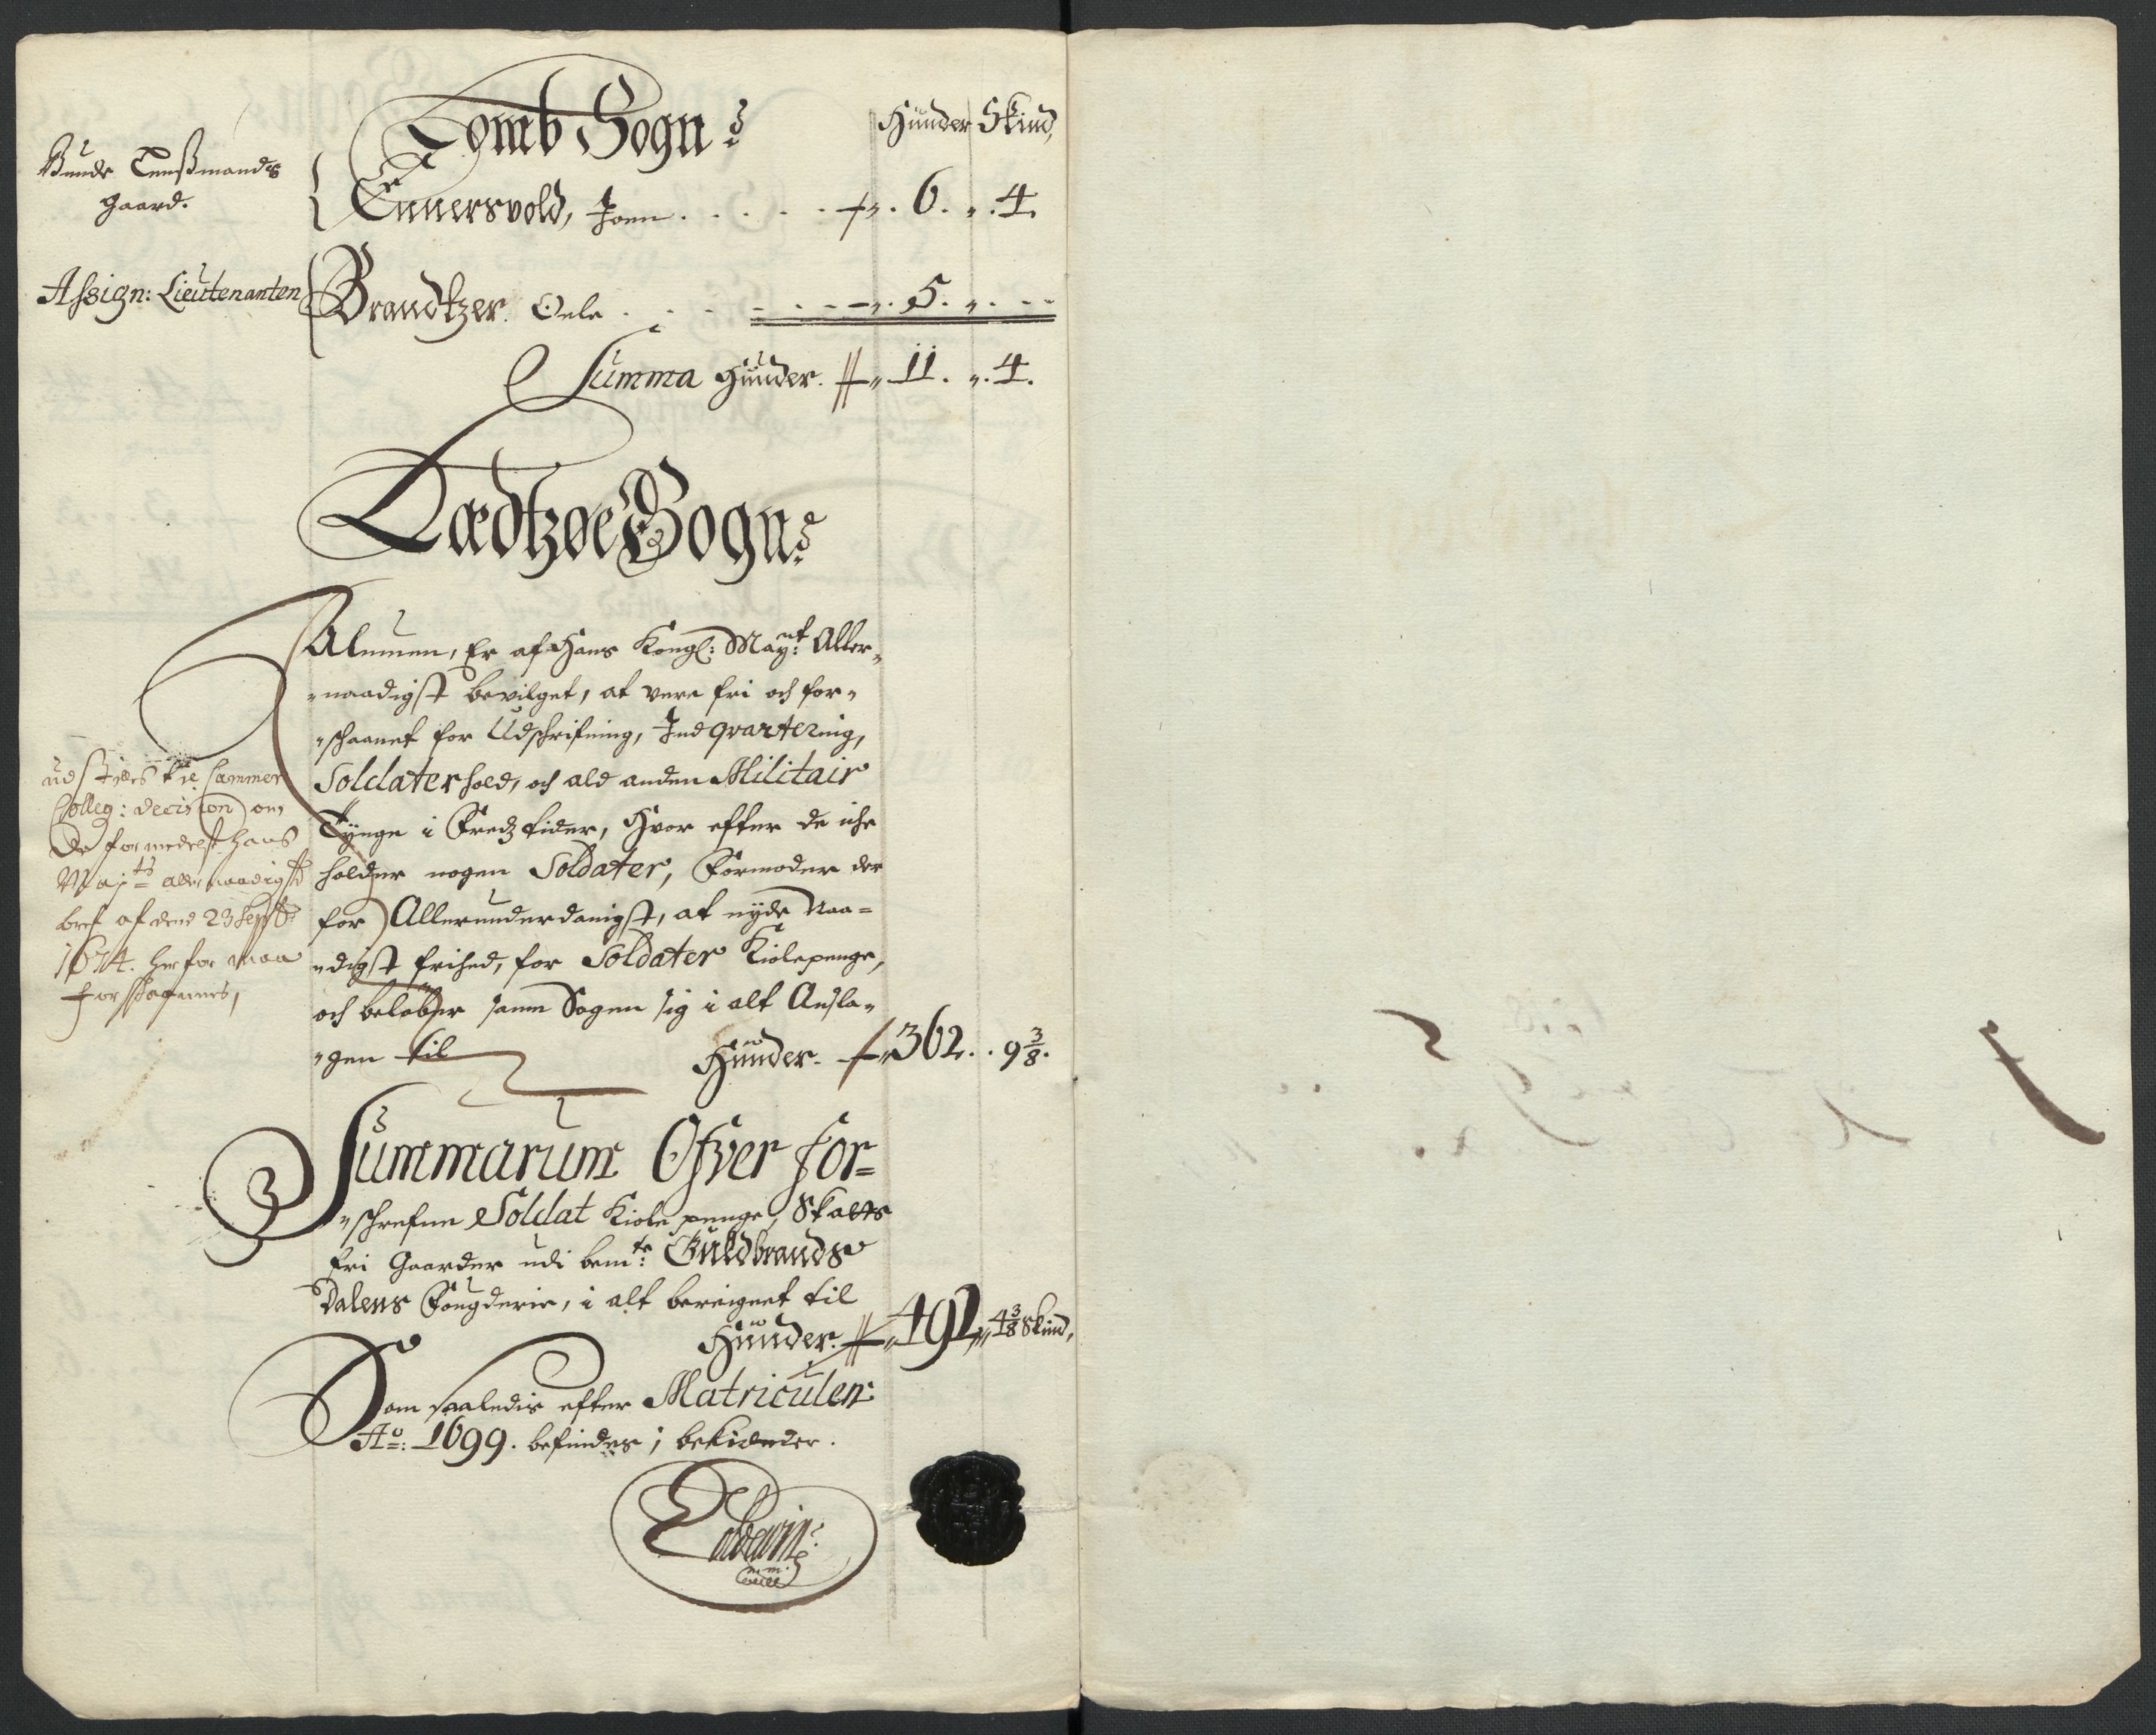 Tomb Sogn
Hunder Skind,
Bunde Lenßmands
gaard.
Ennersvold, Joen . . . . 6. 4.
Assign: Lieutenanten
Brandtzer. Oele . . . 5.
Summa Hunder. 11. 4.
Lædtzøe Sogn
Almuen, Er af Hans Kongl: Mayt: Aller-
naadigst bevilget, at vere fri och for-
schaanet for Udschrifning, Indqvartering,
Soldaterhold, och ald anden Militair
Tynge i Fredz tider, Hvor efter de iche
holder nogen Soldater, Formoder der
for Allerunderdanigst, at nyde Naa-
digst frihed, for Soldater Kiolepenge,
och beløber samme Sogen sig i alt Ansla-
gen til Hunder. 362. 9 3/8.
udsettes til Cammer
Colleg: decision om
De formedelst hans
Majts allernaadigste
bref af dend 23 Sept:
1674. herfor maa
forskaanes,
Summarum Ofver for-
schrefne Soldat Kiole penge, Skatts
fri Gaarder udi bemte: Guldbrands
Dalens Fougderie, i alt beregnet til
Hunder. 492 4 3/8 Skind,
Som saaledis efter Matriculen
Ao: 1699. befindes, bekiender.